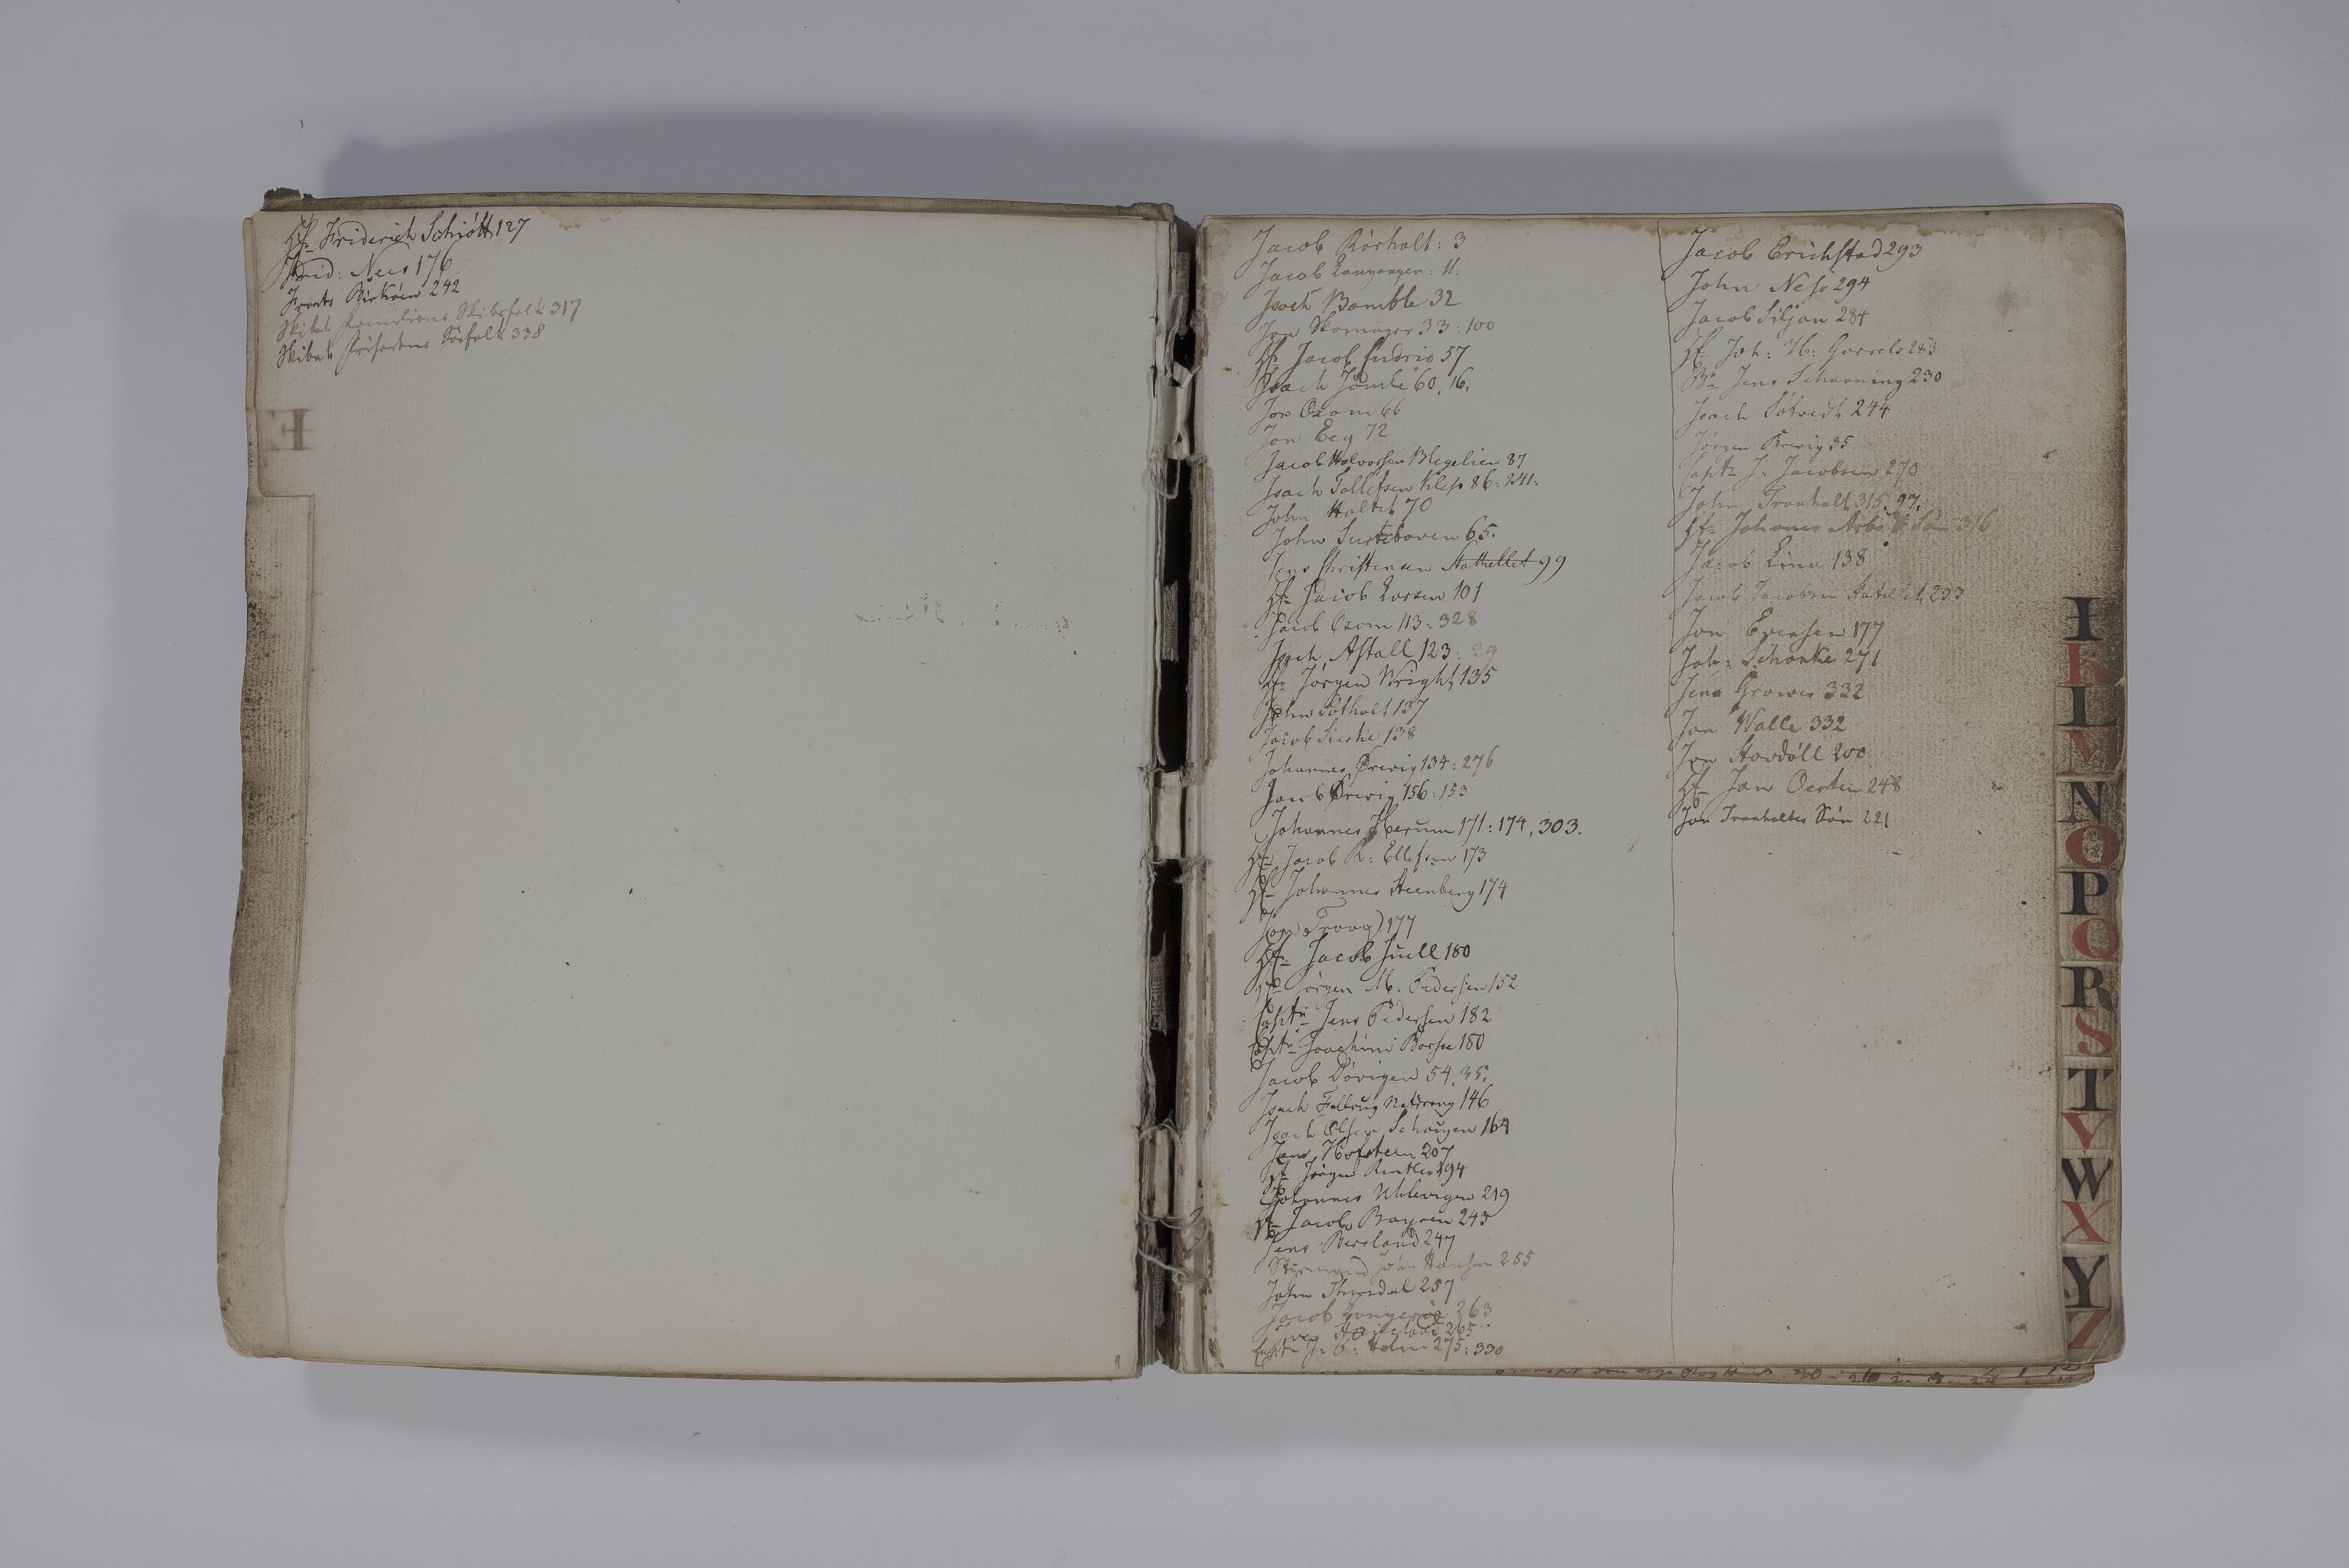 Hr Friderich Schiøtt 127
Frid: Nees 176
Frants Birkøew 242
Skibet Familiens Skibsfolk 317
Skibet Prösertens Söefolk 338
E
Jacob Rörholt: 3
Jacob Langangen: 11:
Isach Bamble 32
Jon Skomager 33: 100
Hr Jacob Ludvig 57
Isach Jömle 60, 16.
Jon Oxom 66
Jon Eeg 72
Jacob Halvorsen Blegelien 87
Isach Tollefsen Klep 86: 241:
John Holtet 70
John Surteboven 65.
Jens Christensen Stathellet 99
Hr Jacob Larsen 101
Jacob Oxom 113: 328
Isach Astall 123: 29
Hr Jørgen Wright 135
John Søtholt 137
Jacob 138
Johannes Örwig 134: 276
Jacob Örwig 156: 153
Johannes Herum 171: 174, 303.
Hr Jacob R: Ellefsen 173
Hr Johannes Steenberg 174
Jon Traag 177
Hr: Jacob Juell 180
Hr Jörgen M: Pedersen 152
Captn Jens Pedersen 182
Captn Joachim Borse 180
Jacob Dövigen 54, 35.
Isach 146
Isach Olsen Schougen 164
Jens Hofsteen 207
Hr Jørgen 194
Johannes Uhlevigen 219
Hr Jacob Boysen 243
Jens Berland 247
Styrmand John Hansen 255
John Thorsdal 257
Jacob Langerøe 263
265
Captn J: C: Holm 275: 330
Jacob Erichstad 293
John Ness 294
Jacob Siljan 284
Hr Joh: H: Garrels 283
Br Jens Scharning 230
Isach Søtvedt 244
Jørgen Krewig 35
Captn J: Jacobsen 270
John Traaholt 315, 97.
Hr Johannes Arbo & Sön 316
Jacob Linn 138
Jacob Jacobsen Stathellet 233
Jon Evensen 177
Joh: Schanke 271
Jens Grower 332
Jon Walle 332
Jon Havdöll 200
Hr Jan Oertem 248
Jon Traaholtes Sön 221
I
K
L
M
N
O
P
Q
R
S
T
V
W
X
Y
Z